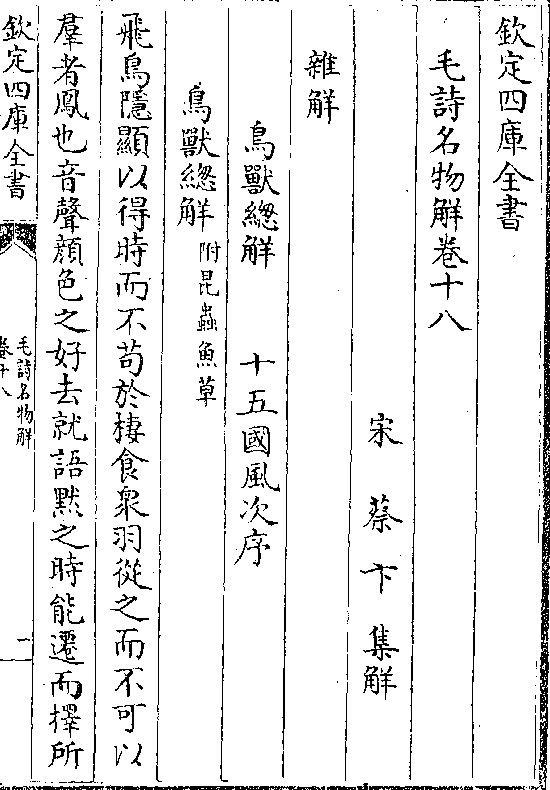 欽定四庫全書
毛詩名物解卷十八
宋 蔡卞 集解
雜解
鳥獸緫解 十五國風次序
鳥獸緫解附昆蟲魚草
飛鳥隱顯以得時而不苟於棲食衆羽從之而不可以
羣者鳳也音聲顔色之好去就語黙之時能遷而擇所
欽定四庫全書
毛詩名物解
卷十八
一